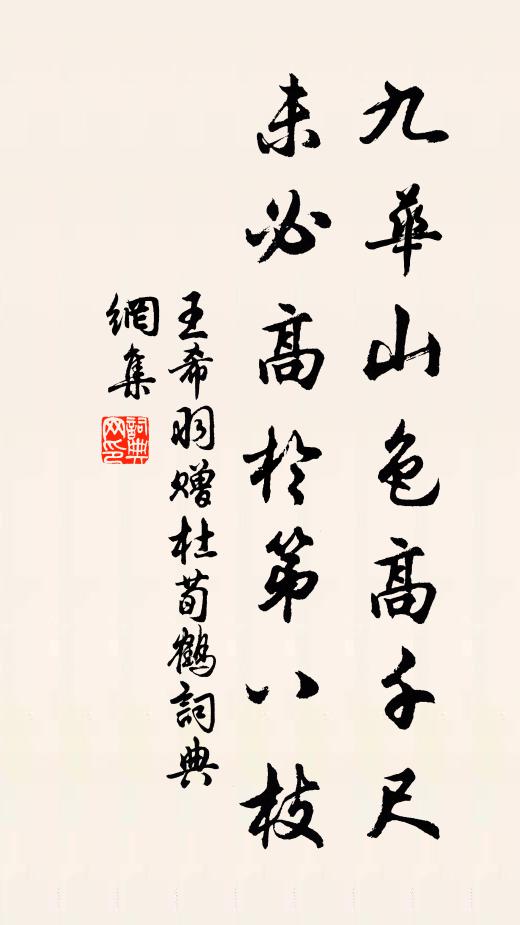 九華山色高千尺
未必高於第八枝
王希羽贈杜荀鶴詞典
網集
詞典
网印